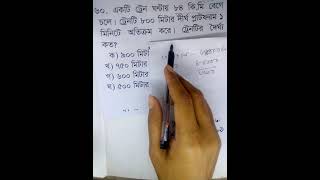 ৬০. একটি ট্রেন ঘন্টায় ৮৪ কি.মি বেগে
চলে। ট্রেনটি ৮০০ মিটার দীর্ঘ প্লাটফরম ১
মিনিটে অতিক্রম করে। ট্রেনটির দৈর্ঘ্য
কত?
ক) ৯০০ মিটার
খ) ৭৫০ মিটার
গ) ৬০০ মিটার
ঘ) ৫০০ মিটার